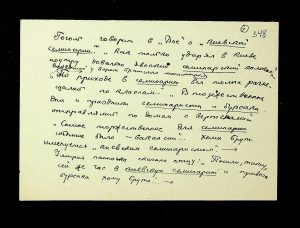 ① 348
Гоголь говорит в "Вие" о "киевской
семинарии". "Как только ударял в Киеве
поутру довольно звонкий семинарский колокол,
висевший у ворот Братского монастыря"
"По приходе в семинарию вся толпа разме-
щалась по классам". "В торжественные
дни и праздники семинаристы и бурсаки
отправлялись по домам с вертепами"
"Самое торжественное для семинарии
событие было — вакансии". Хома Брут
именуется "киевским семинаристом". →
Умирая панночка сказала отцу: "Пошли, тату,
сей же час в киевскую семинарию и привези
бурсака Хому Брута". →